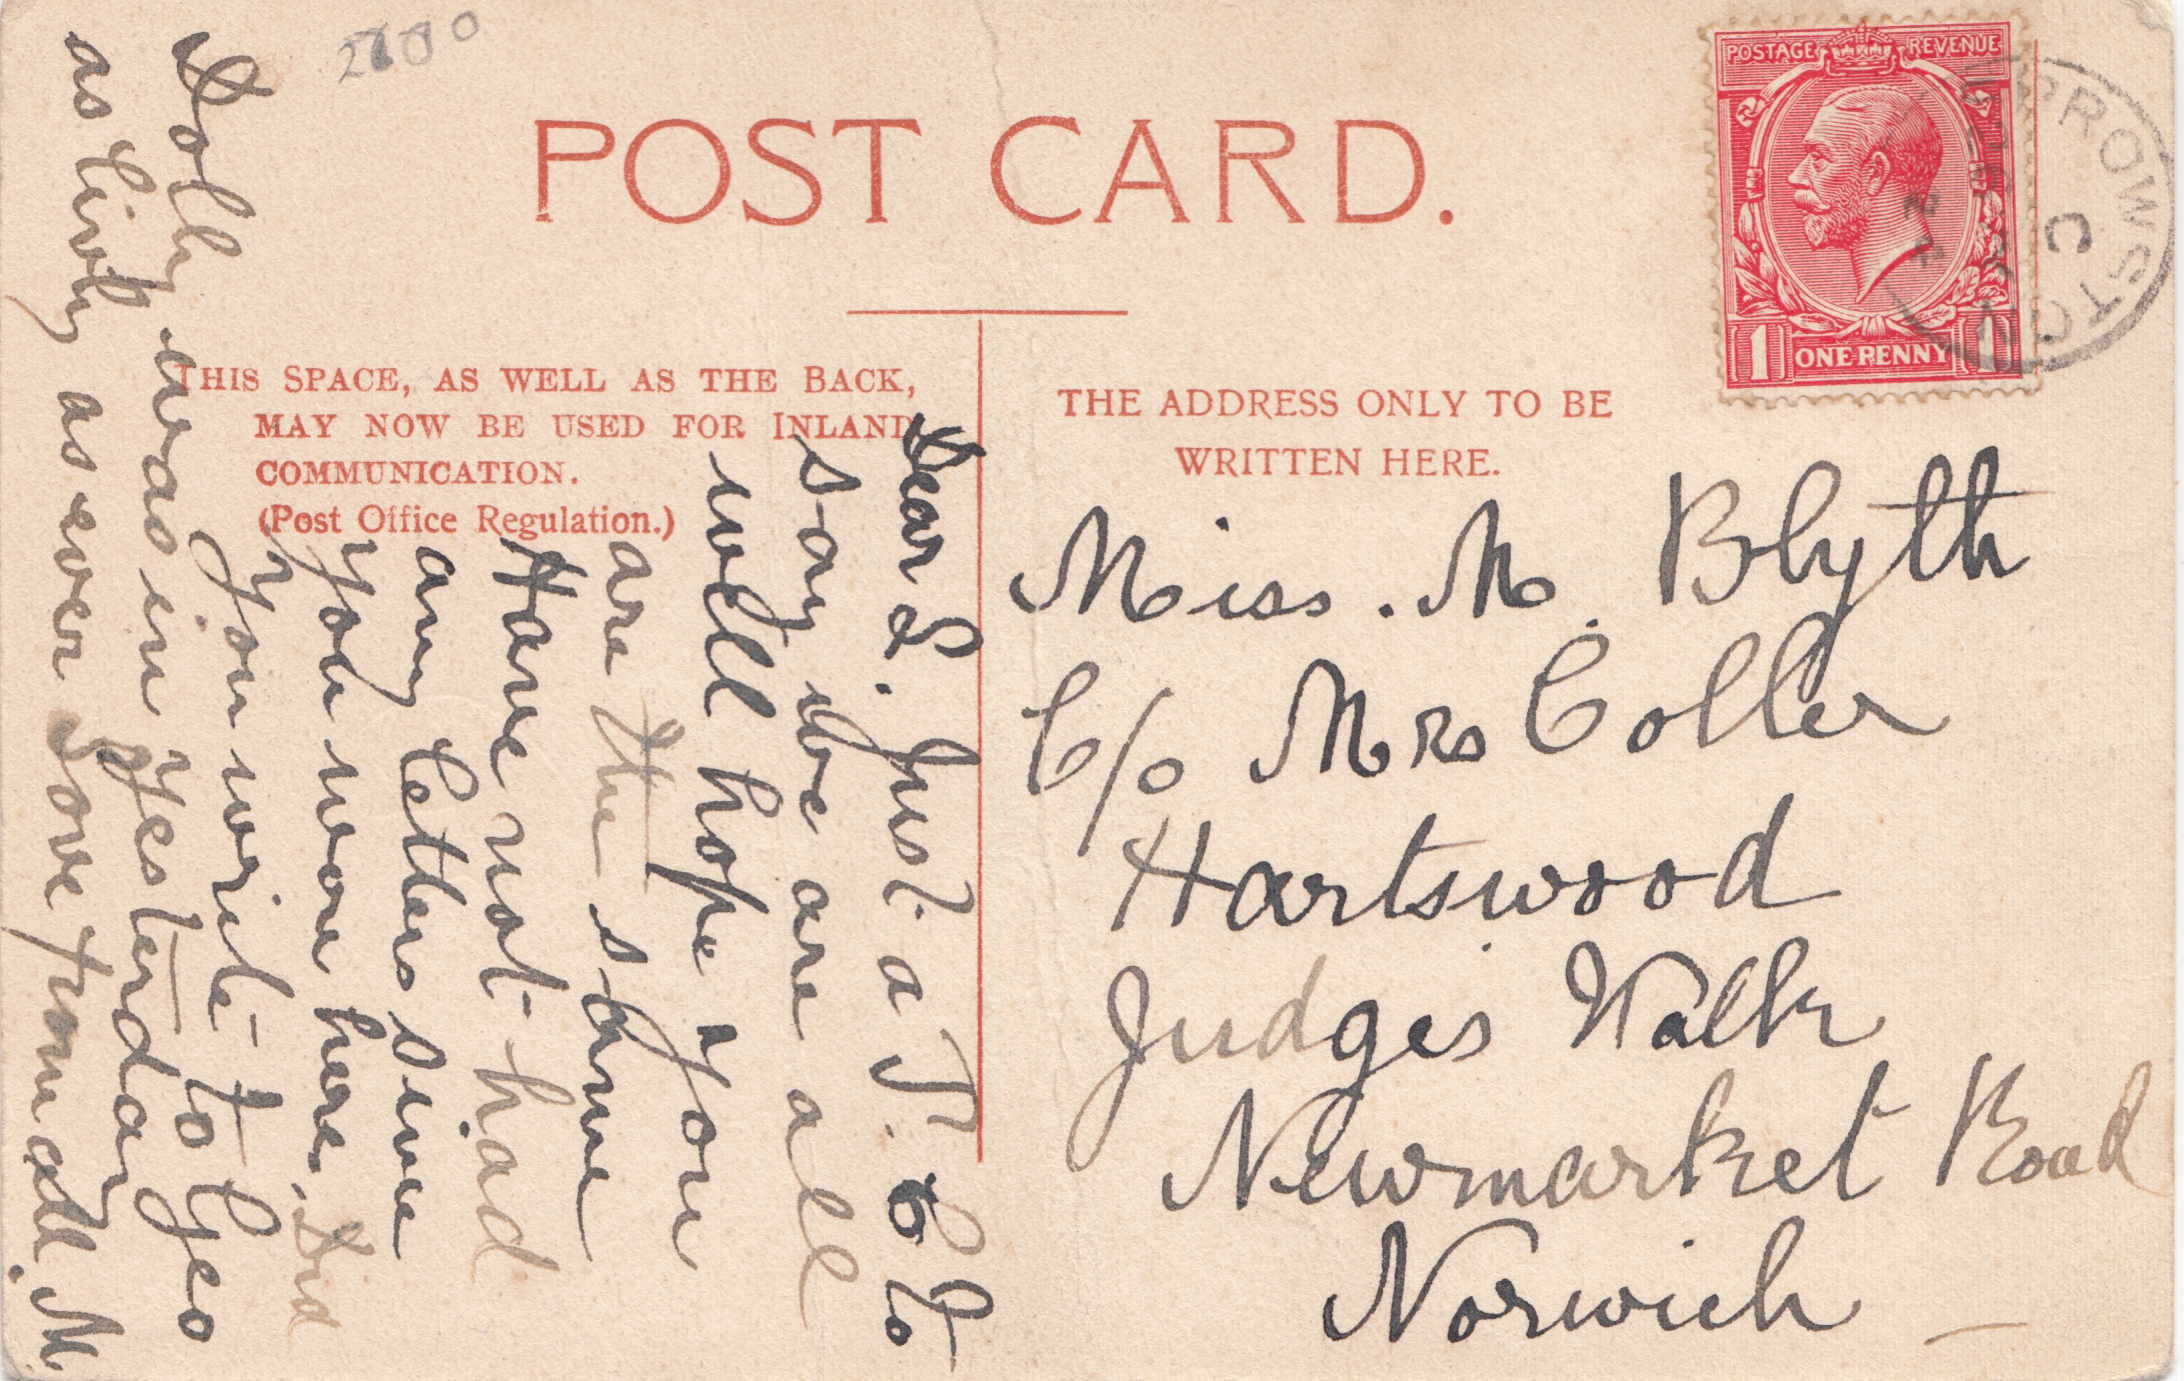 2780
POST CARD.
POSTAGE REVENUE
1 ONE PENNY 1
BROWSTON
C
THIS SPACE, AS WELL AS THE BACK,
MAY NOW BE USED FOR INLAND
COMMUNICATION.
(Post Office Regulation.)
THE ADDRESS ONLY TO BE
WRITTEN HERE.
Miss. M. Blyth
C/o Mrs Coller
Hartswood
Judges Walk
Newmarket Road
Norwich
Dear L. Just a P. C to
say we are all
well hope you
are the same
Have not had
any letters since
you were here. Did
you write to Geo
Dolly was in yesterday
as lively as ever Love from all. M.